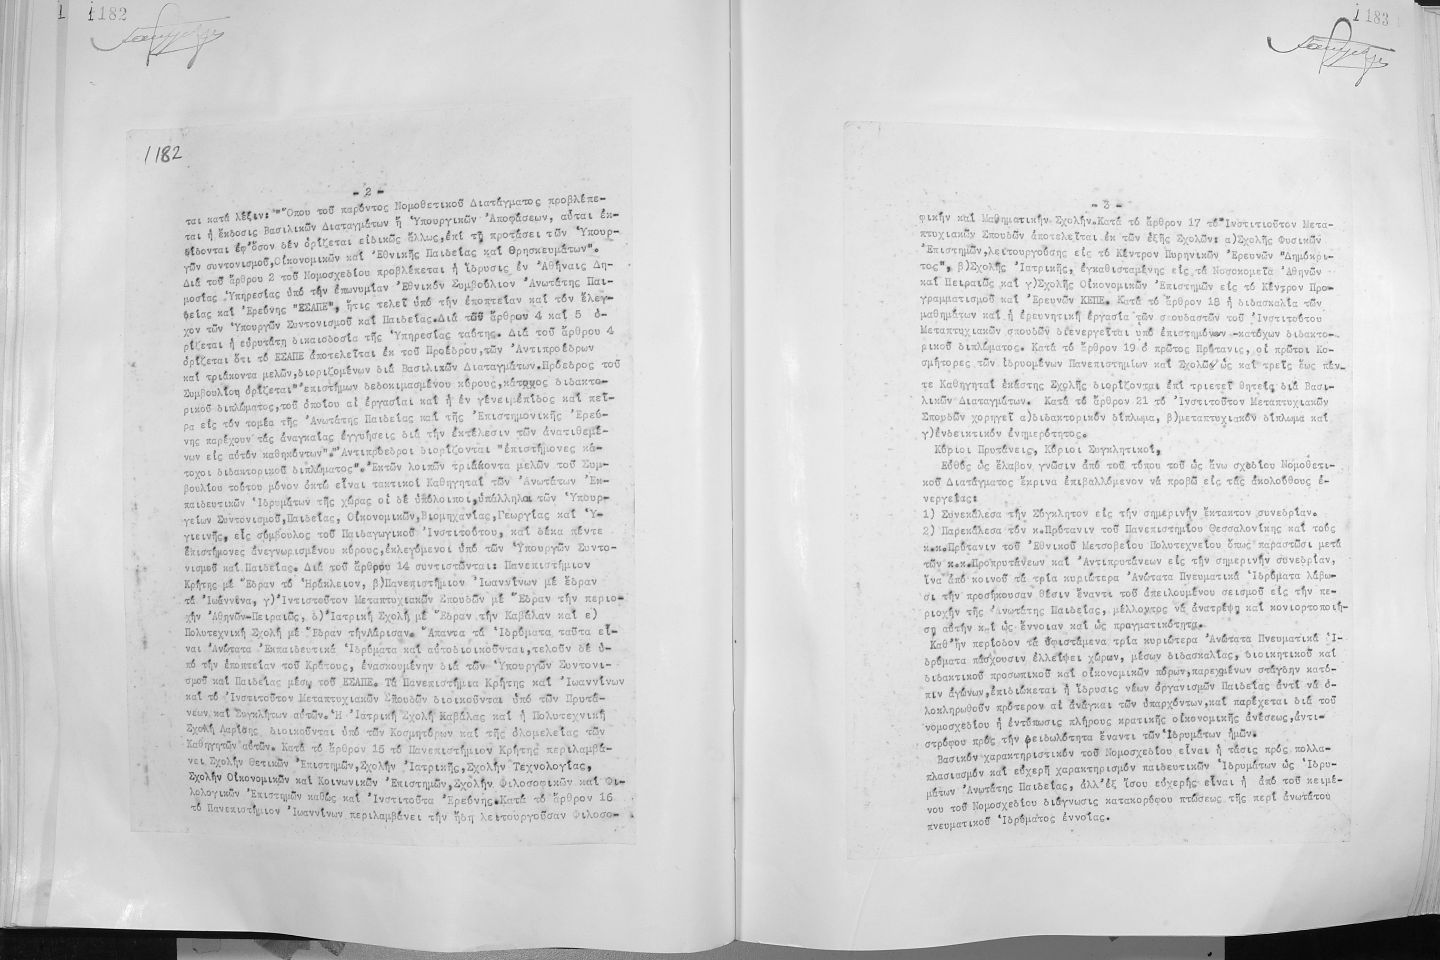 1182
1182
- 2 -
ται κατά λέξιν: "Ὅπου τοῦ παρόντος Νομοθετικοῦ Διατάγματος προβλέπε-
ται ἡ ἔκδοσις Βασιλικῶν Διαταγμάτων ἤ Ὑπουργικῶν Ἀποφάσεων, αὗται ἐκ-
δίδονται ἐφ'ὅσον δέν ὁρίζεται εἰδικῶς ἄλλως,ἐπί τῇ προτάσει τῶν Ὑπουρ-
γῶν συντονισμοῦ,Οἰκονομικῶν καί Ἐθνικῆς Παιδείας καί Θρησκευμάτων".
Διά τοῦ ἄρθρου 2 τοῦ Νομοσχεδίου προβλέπεται ἡ ἵδρυσις ἐν Ἀθήναις Δη-
μοσίας Ὑπηρεσίας ὑπό τήν ἐπωνυμίαν Ἐθνικόν Συμβούλιον Ἀνωτάτης Παι-
δείας καί Ἐρεύνης "ΕΣΑΠΕ", ἥτις τελεῖ ὑπό τήν ἐποπτείαν καί τόν ἔλεγ-
χον τῶν Ὑπουργῶν Συντονισμοῦ καί Παιδείας.Διά τῶν ἄρθρου 4 καί 5 ὁ-
ρίζεται ἡ εὐρυτάτη δικαιοδοσία τῆς Ὑπηρεσίας ταύτης. Διά τοῦ ἄρθρου 4
ὁρίζεται ὅτι τό ΕΣΑΠΕ ἀποτελεῖται ἐκ τοῦ Προέδρου,τῶν Ἀντιπροέδρων
καί τριάκοντα μελῶν,διοριζομένων διά Βασιλικῶν Διαταγμάτων.Πρόεδρος τοῦ
Συμβουλίου ὁρίζεται"ἐπιστήμων δεδοκιμασμένου κύρους,κάτοχος διδακτο-
ρικοῦ διπλώματος,τοῦ ὁποίου αἱ ἐργασίαι καί ἡ ἐν γένει μέριμνα καί πεῖ-
ρα εἰς τόν τομέα τῆς Ἀνωτάτης Παιδείας καί τῆς Ἐπιστημονικῆς Ἐρεύ-
νης παρέχουν τάς ἀναγκαίας ἐγγυήσεις διά τήν ἐκτέλεσιν τῶν ἀνατιθεμέ-
νων εἰς αὐτόν καθηκόντων"."Ἀντιπρόεδροι διορίζονται "ἐπιστήμονες κά-
τοχοι διδακτορικοῦ διπλώματος". Ἐκ τῶν λοιπῶν τριάκοντα μελῶν τοῦ Συμ-
βουλίου τούτου μόνον ὀκτώ εἶναι τακτικοί Καθηγηταί τῶν Ἀνωτάτων Ἐκ-
παιδευτικῶν Ἱδρυμάτων τῆς χώρας οἱ δέ ὑπόλοιποι,ὑπάλληλοι τῶν Ὑπουρ-
γείων Συντονισμοῦ,Παιδείας, Οἰκονομικῶν,Βιομηχανίας,Γεωργίας καί Ὑ-
γιεινῆς, εἷς σύμβουλος τοῦ Παιδαγωγικοῦ Ἰνστιτούτου, καί δέκα πέντε
ἐπιστήμονες ἀνεγνωρισμένου κύρους,ἐκλεγόμενοι ὑπό τῶν Ὑπουργῶν Συντο-
νισμοῦ καί Παιδείας. Διά τοῦ ἄρθρου 14 συνιστῶνται: Πανεπιστήμιον
Κρήτης μέ Ἕδραν τό Ἡράκλειον, β)Πανεπιστήμιον Ἰωαννίνων μέ ἕδραν
τά Ἰωάννενα, γ)Ἰνστιτοῦτον Μεταπτυχιακῶν Σπουδῶν μέ Ἕδραν τήν περιο-
χήν Ἀθηνῶν-Πειραιῶς, δ)Ἰατρική Σχολή μέ Ἕδραν τήν Καβάλαν καί ε)
Πολυτεχνική Σχολή μέ Ἕδραν τήν Λάρισαν. Ἅπαντα τά Ἱδρύματα ταῦτα εἶ-
ναι Ἀνώτατα Ἐκπαιδευτικά Ἱδρύματα καί αὐτοδιοικοῦνται,τελοῦν δέ ὑ-
πό τήν ἐποπτείαν τοῦ Κράτους, ἐνασκουμένην διά τῶν Ὑπουργῶν Συντονι-
σμοῦ καί Παιδείας μέσῳ τοῦ ΕΣΑΠΕ. Τά Πανεπιστήμια Κρήτης καί Ἰωαννίνων
καί τό Ἰνστιτοῦτον Μεταπτυχιακῶν Σπουδῶν διοικοῦνται ὑπό τῶν Πρυτά-
νεων καί Συγκλήτων αὐτῶν.Ἡ Ἰατρική Σχολή Καβάλας καί ἡ Πολυτεχνική
Σχολή Λαρίσης διοικοῦνται ὑπό τῶν Κοσμητόρων καί τῆς ὁλομελείας τῶν
Καθηγητῶν αὐτῶν. Κατά τό ἄρθρον 15 τό Πανεπιστήμιον Κρήτης περιλαμβά-
νει Σχολήν Θετικῶν Ἐπιστημῶν,Σχολήν Ἰατρικῆς,Σχολήν Τεχνολογίας,
Σχολήν Οἰκονομικῶν καί Κοινωνικῶν Ἐπιστημῶν,Σχολήν Φιλοσοφικῶν καί Φι-
λολογικῶν Ἐπιστημῶν καθώς καί Ἰνστιτοῦτα Ἐρεύνης.Κατά τό ἄρθρον 16
τό Πανεπιστήμιον Ἰωαννίνων περιλαμβάνει τήν ἤδη λειτουργοῦσαν Φιλοσο-
1183
- 3 -
φικήν καί Μαθηματικήν Σχολήν.Κατά τό ἄρθρον 17 τό Ἰνστιτιοῦτον Μετα-
πτυχιακῶν Σπουδῶν ἀποτελεῖται ἐκ τῶν ἑξῆς Σχολῶν: α)Σχολῆς Φυσικῶν
Ἐπιστημῶν,λειτουργούσης εἰς τό Κέντρον Πυρηνικῶν Ἐρευνῶν "Δημόκρι-
τος", β)Σχολῆς Ἰατρικῆς, ἐγκαθισταμένης εἰς τά Νοσοκομεῖα Ἀθηνῶν
καί Πειραιῶς καί γ)Σχολῆς Οἰκονομικῶν Ἐπιστημῶν εἰς τό Κέντρον Προ-
γραμματισμοῦ καί Ἐρευνῶν ΚΕΠΕ. Κατά τό ἄρθρον 18 ἡ διδασκαλία τῶν
μαθημάτων καί ἡ ἐρευνητική ἐργασία τῶν σπουδαστῶν τοῦ Ἰνστιτούτου
Μεταπτυχιακῶν σπουδῶν διενεργεῖται ὑπό ἐπιστημόνων -κατόχων διδακτο-
ρικοῦ διπλώματος. Κατά τό ἄρθρον 19 ὁ πρῶτος Πρύτανις, οἱ πρῶτοι Κο-
σμήτορες τῶν ἱδρυομένων Πανεπιστημίων καί Σχολῶν ὡς καί τρεῖς ἕως πέν-
τε Καθηγηταί ἑκάστης Σχολῆς διορίζονται ἐπί τριετεῖ θητείᾳ διά Βασι-
λικῶν Διαταγμάτων. Κατά τό ἄρθρον 21 τό Ἰνστιτοῦτον Μεταπτυχιακῶν
Σπουδῶν χορηγεῖ α)διδακτορικόν δίπλωμα, β)μεταπτυχιακόν δίπλωμα καί
γ)ἐνδεικτικόν ἐνημερότητος.
Κύριοι Πρυτάνεις, Κύριοι Συγκλητικοί,
Εὐθύς ὡς ἔλαβον γνῶσιν ἀπό τοῦ τύπου τοῦ ὡς ἄνω σχεδίου Νομοθετι-
κοῦ Διατάγματος ἔκρινα ἐπιβαλλόμενον νά προβῶ εἰς τάς ἀκολούθους ἐ-
νεργείας:
1) Συνεκάλεσα τήν Σύγκλητον εἰς τήν σημερινήν ἔκτακτον συνεδρίαν.
2) Παρεκάλεσα τόν κ.Πρύτανιν τοῦ Πανεπιστημίου Θεσσαλονίκης καί τούς
κ.κ.Πρύτανιν τοῦ Ἐθνικοῦ Μετσοβείου Πολυτεχνείου ὅπως παραστῶσι μετά
τῶν κ.κ.Προπρυτάνεων καί Ἀντιπρυτάνεων εἰς τήν σημερινήν συνεδρίαν,
ἵνα ἀπό κοινοῦ τά τρία κυριώτερα Ἀνώτατα Πνευματικά Ἱδρύματα λάβω-
σι τήν προσήκουσαν θέσιν ἔναντι τοῦ ἀπειλουμένου σεισμοῦ εἰς τήν πε-
ριοχήν τῆς Ἀνωτάτης Παιδείας, μέλλοντος νά ἀνατρέψῃ καί κονιορτοποιή-
σῃ αὐτήν καί ὡς ἔννοιαν καί ὡς πραγματικότητα.
Καθ'ἥν περίοδον τά ὑφιστάμενα τρία κυριώτερα Ἀνώτατα Πνευματικά Ἱ-
δρύματα πάσχουσιν ἐλλείψει χώρων, μέσων διδασκαλίας, διοικητικοῦ καί
διδακτικοῦ προσωπικοῦ καί οἰκονομικῶν πόρων,παρεχομένων στάγδην κατό-
πιν ἀγώνων,ἐπιδιώκεται ἡ ἵδρυσις νέων ὀργανισμῶν Παιδείας ἀντί νά ὁ-
λοκληρωθοῦν πρότερον αἱ ἀνάγκαι τῶν ὑπαρχόντων,καί παρέχεται διά τοῦ
νομοσχεδίου ἡ ἐντύπωσις πλήρους κρατικῆς οἰκονομικῆς ἀνέσεως,ἀντι-
στρόφου πρός τήν φειδωλότητα ἔναντι τῶν Ἱδρυμάτων ἡμῶν.
Βασικόν χαρακτηριστικόν τοῦ Νομοσχεδίου εἶναι ἡ τάσις πρός πολλα-
πλασιασμόν καί εὐχερῆ χαρακτηρισμόν παιδευτικῶν Ἱδρυμάτων ὡς Ἱδρυ-
μάτων Ἀνωτάτης Παιδείας, ἀλλ'ἐξ ἴσου εὐχερής εἶναι ἡ ἀπό τοῦ κειμέ-
νου τοῦ Νομοσχεδίου διάγνωσις κατακορύφου πτώσεως τῆς περί ἀνωτάτου
πνευματικοῦ Ἱδρύματος ἐννοίας.